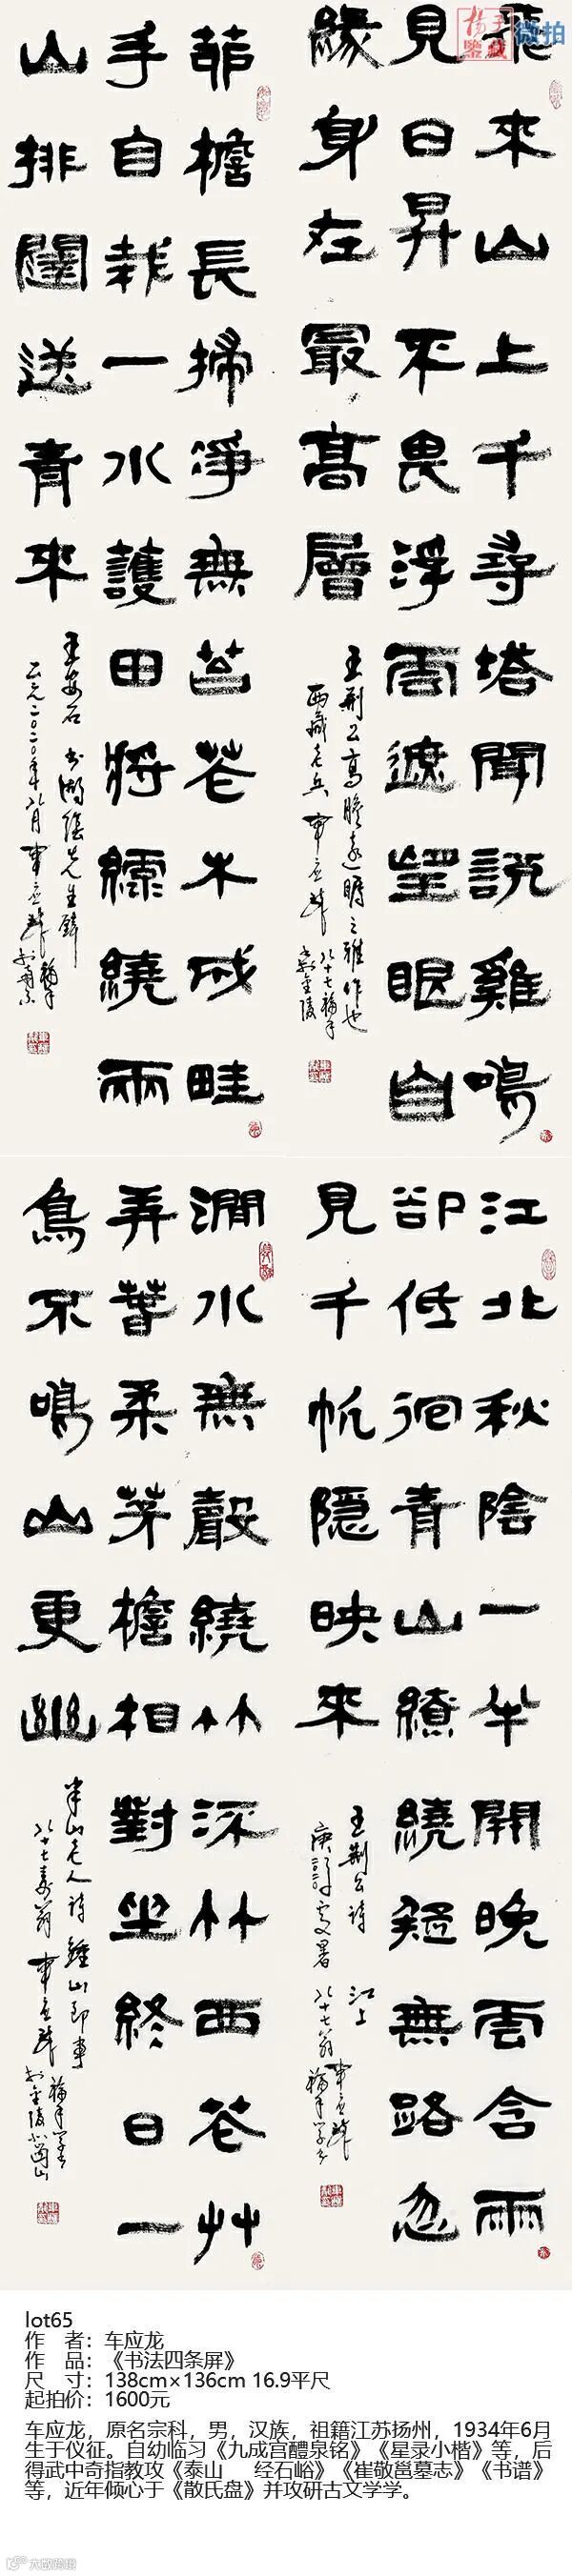 飛來山上千尋塔聞說雞鳴
見日昇不畏浮雲遮望眼自
緣身在最高層
王荆公高瞻遠矚之雅作也
西藏老兵車應龍八十七福手
書金陵
茆檐長掃淨無苔花木成畦
手自栽一水護田將綠繞兩
山排闥送青來
王安石書湖陰先生辟
江北秋陰一半開晚雲含雨
卻低徊青山繚繞疑無路忽
見千帆隱映來
王荆公詩江上
澗水無聲繞竹流竹西花艸
弄春柔茅檐相對坐終日一
鳥不鳴山更幽
半山老人詩鍾山即事
微拍
lot65
作 者：车应龙
作 品：《书法四条屏》
尺 寸：138cm×136cm 16.9平尺
起拍价：1600元
车应龙，原名宗科，男，汉族，祖籍江苏扬州，1934年6月
生于仪征。自幼临习《九成宫醴泉铭》《星录小楷》等，后
得武中奇指教攻《泰山 经石峪》《崔敬邕墓志》《书谱》
等，近年倾心于《散氏盘》并攻研古文学学。